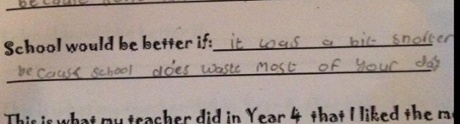 School would be better if: it was a bit shorter
because school does waste most of your day
This is what my teacher did in Year 4 that I liked the